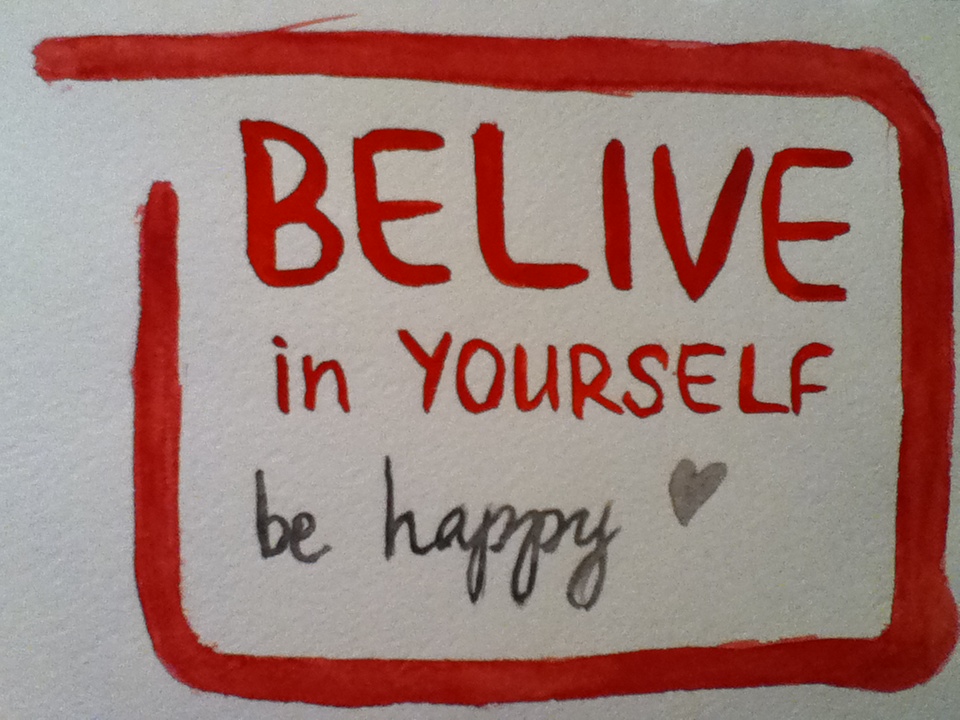 BELIVE
in YOURSELF
be happy